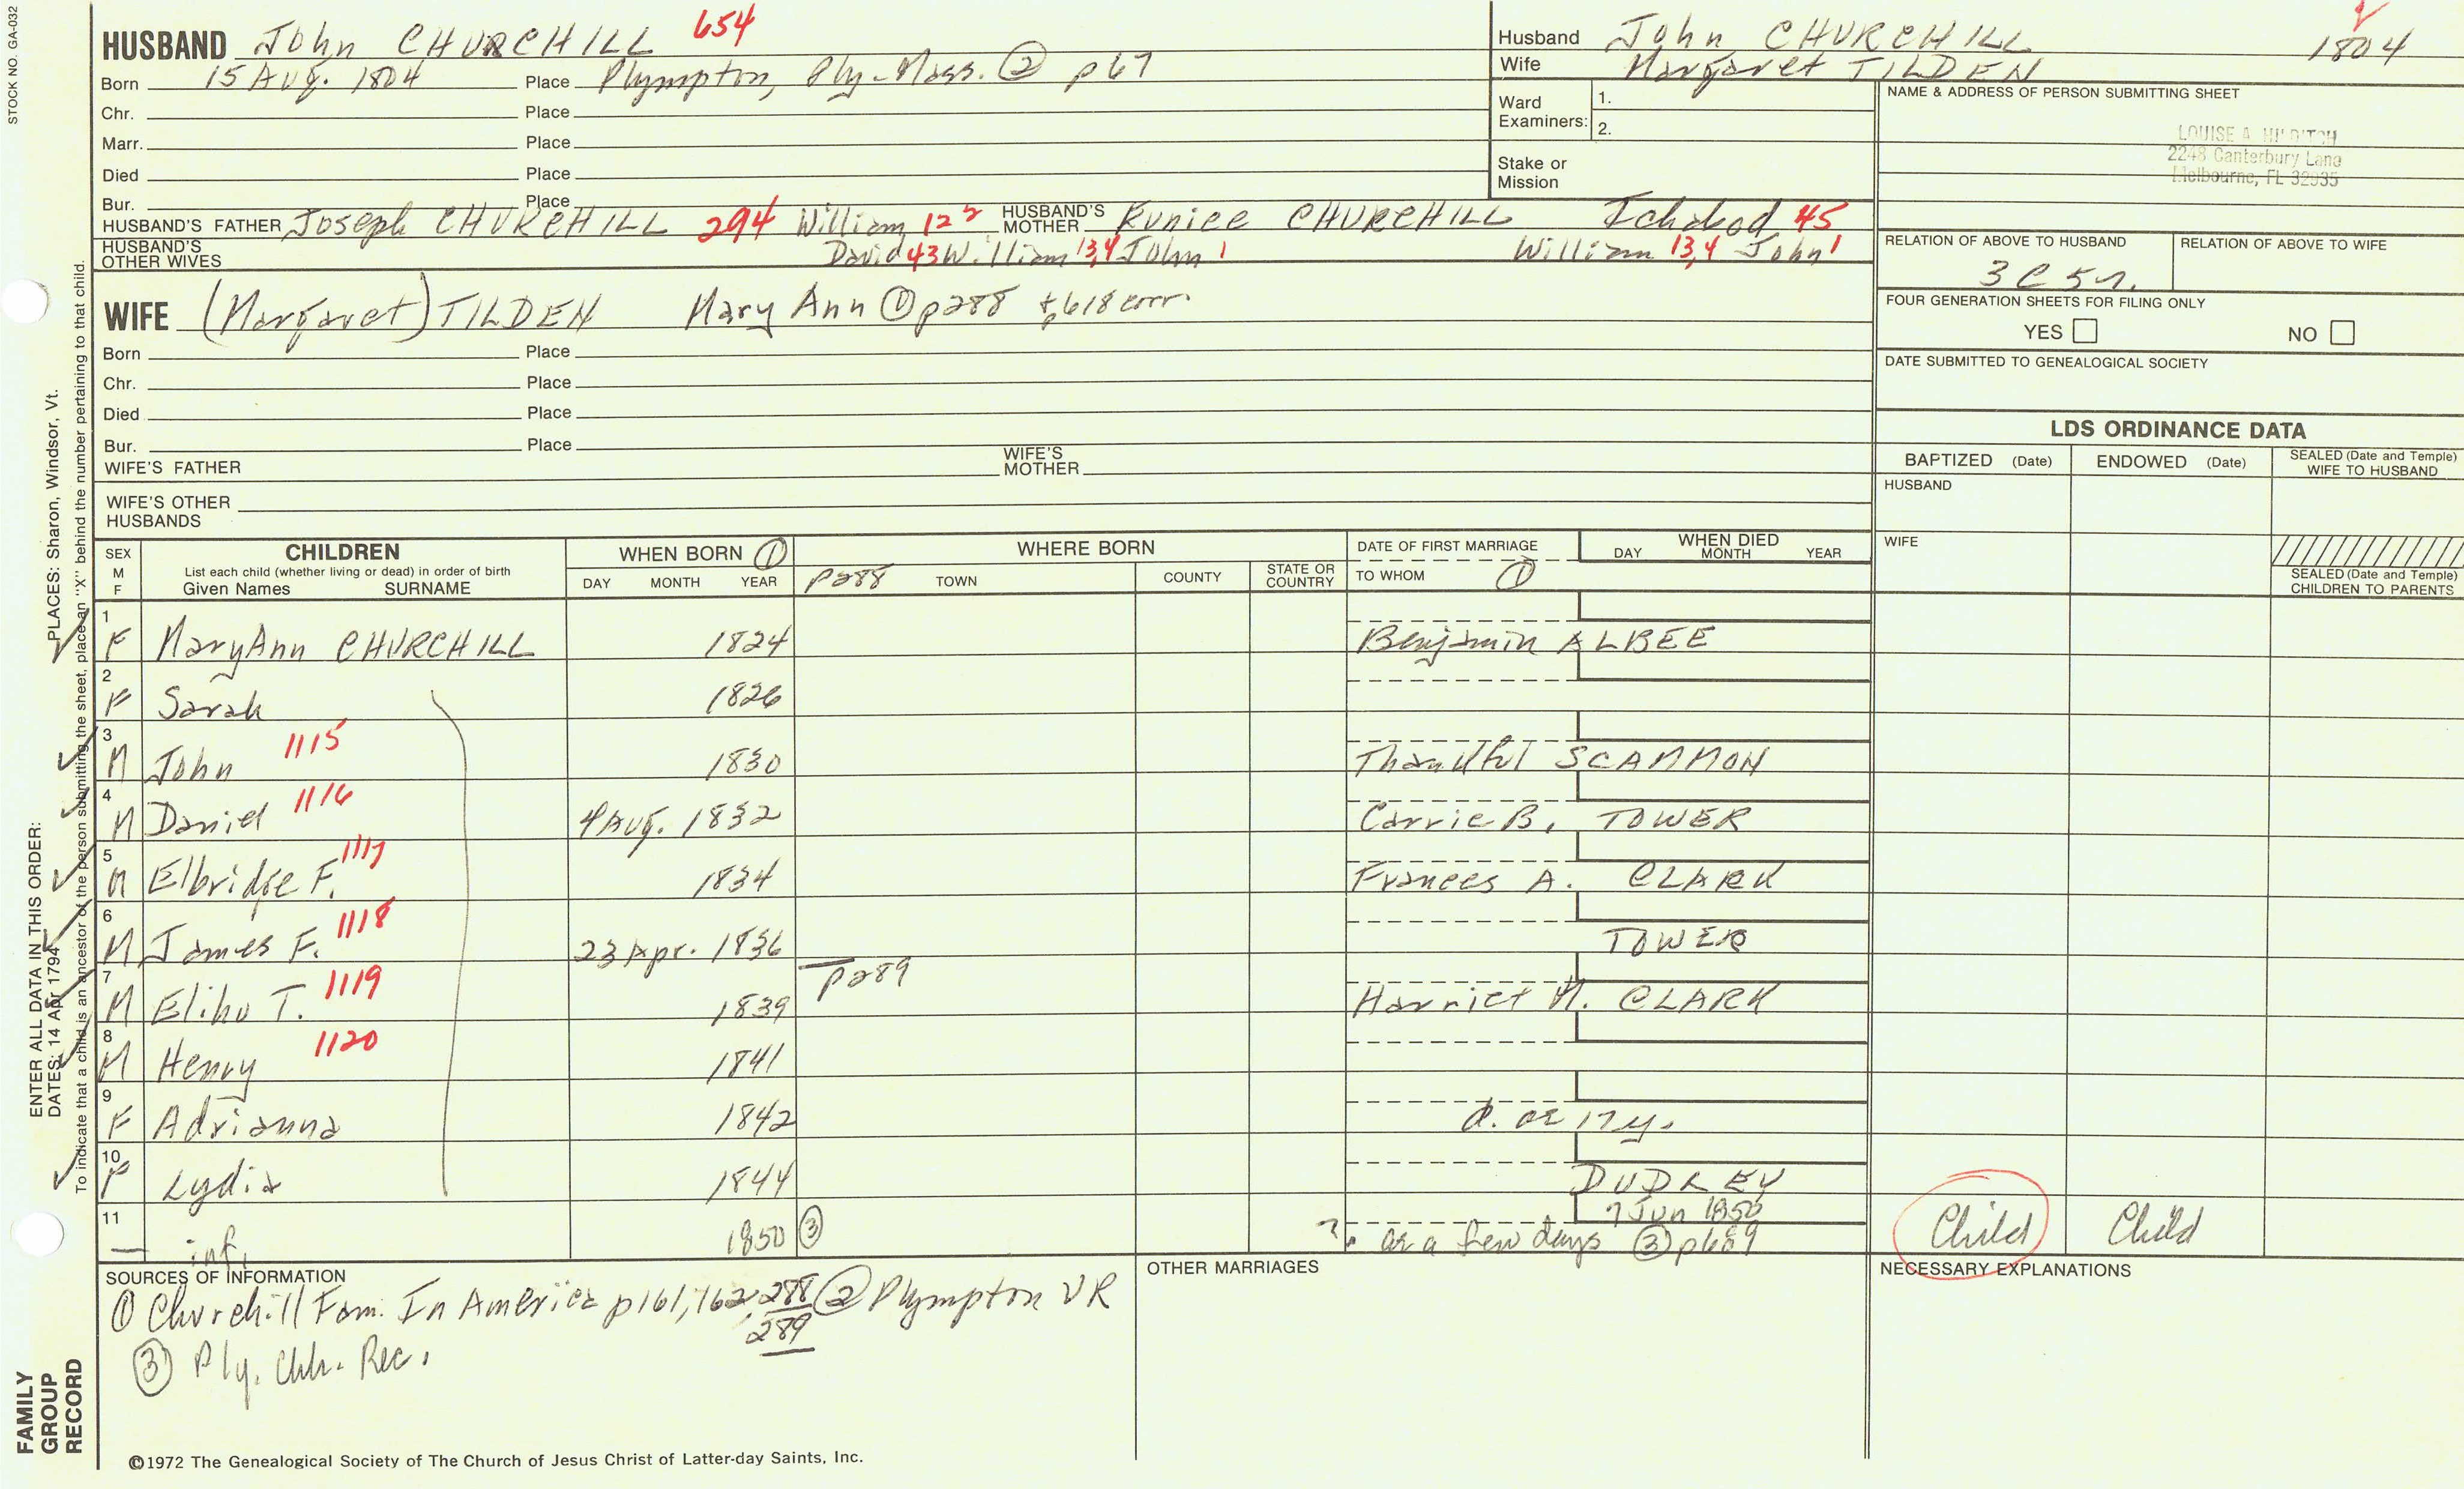 STOCK NO. GA-032
HUSBAND John CHURCHILL 654
Born 15 Aug. 1804 Place Plympton, Ply-Mass. ② p67
Chr. Place
Marr. Place
Died Place
Bur. Place
HUSBAND'S FATHER Joseph CHURCHILL 294 William 12 HUSBAND'S MOTHER Eunice CHURCHILL Ichabod 45
HUSBAND'S OTHER WIVES David 43 William 13,4 John 1 William 13,4 John 1
Husband John CHURCHILL 1804
Wife Margaret TILDEN
Ward Examiners: 1. 2.
Stake or Mission
NAME & ADDRESS OF PERSON SUBMITTING SHEET
LOUISE A
2248 Canterbury Lane
Melbourne, FL 32935
RELATION OF ABOVE TO HUSBAND RELATION OF ABOVE TO WIFE
3C5r.
WIFE (Margaret) TILDEN Mary Ann ① p288 + p618 corr.
Born Place
Chr. Place
Died Place
Bur. Place
WIFE'S FATHER WIFE'S MOTHER
WIFE'S OTHER HUSBANDS
FOUR GENERATION SHEETS FOR FILING ONLY
YES NO
DATE SUBMITTED TO GENEALOGICAL SOCIETY
LDS ORDINANCE DATA
BAPTIZED (Date) ENDOWED (Date) SEALED (Date and Temple) WIFE TO HUSBAND
HUSBAND
WIFE
SEALED (Date and Temple) CHILDREN TO PARENTS
SEX M F
CHILDREN
List each child (whether living or dead) in order of birth
Given Names SURNAME
WHEN BORN ①
DAY MONTH YEAR
WHERE BORN
p288 TOWN COUNTY STATE OR COUNTRY
DATE OF FIRST MARRIAGE
TO WHOM ①
WHEN DIED
DAY MONTH YEAR
1 F MaryAnn CHURCHILL 1824 Benjamin ALBEE
2 F Sarah 1826
3 M John 1115 1830 Thankful SCAMMON
4 M Daniel 1116 4 Aug. 1832 Carrie B. TOWER
5 M Elbridge F. 1117 1834 Frances A. CLARK
6 M James F. 1118 23 Apr. 1836 TOWER
7 M Elihu T. 1119 1839 p289 Harriet M. CLARK
8 M Henry 1120 1841
9 F Adrianna 1842 d. ae 17 y.
10 F Lydia 1844 DUDLEY
11 — inf. 1850 ③ 7 Jun 1850
ae a few days ③ p689 Child Child
SOURCES OF INFORMATION
① Churchill Fam. In America p161, 162, 288 ② Plympton VR
289
③ Ply. Chh. Rec.
OTHER MARRIAGES
NECESSARY EXPLANATIONS
©1972 The Genealogical Society of The Church of Jesus Christ of Latter-day Saints, Inc.
FAMILY GROUP RECORD
ENTER ALL DATA IN THIS ORDER:
DATES: 14 Apr 1794 PLACES: Sharon, Windsor, Vt.
To indicate that a child is an ancestor of the person submitting the sheet, place an "x" behind the number pertaining to that child.